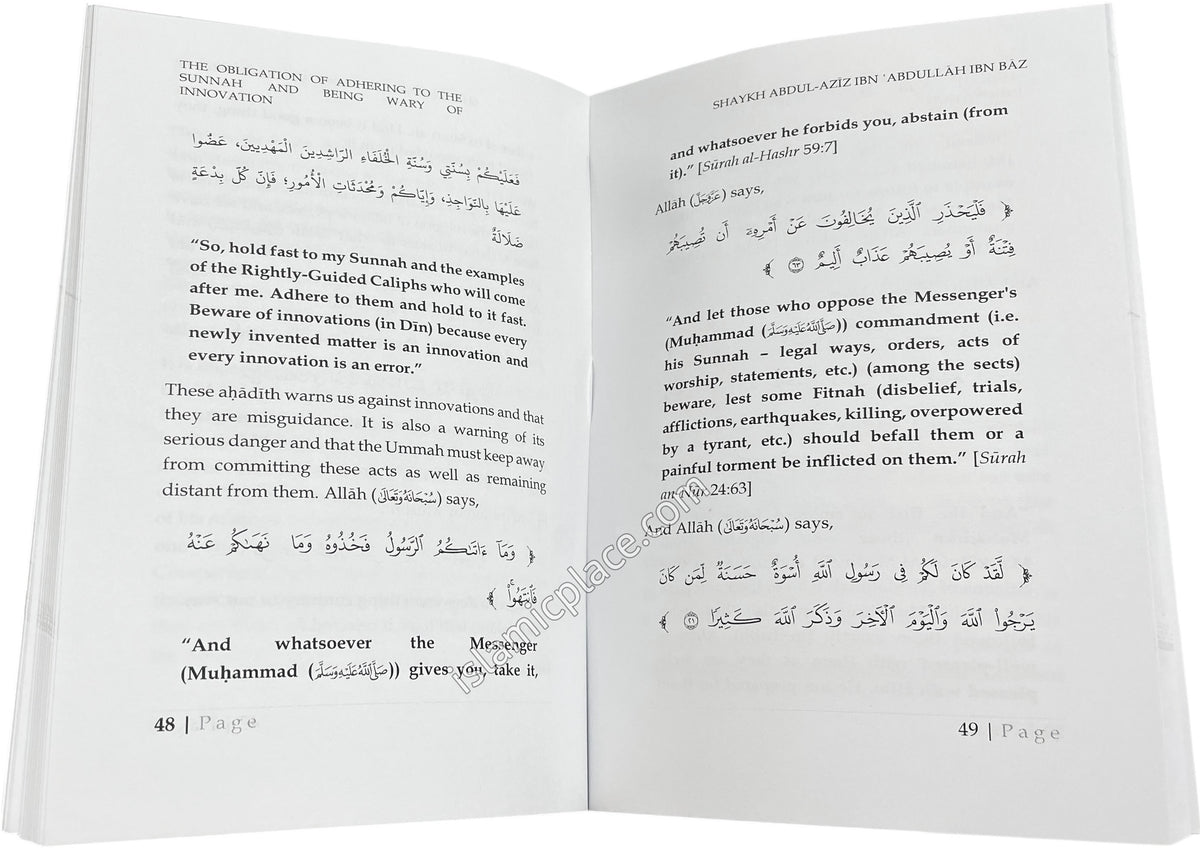 THE OBLIGATION OF ADHERING TO THE
SUNNAH AND BEING WARY OF
INNOVATION
فَعَلَيْكُمْ بِسُنَّتِي وَسُنَّةِ الْخُلَفَاءِ الرَّاشِدِينَ الْمَهْدِيِينَ، عَضُّوا
عَلَيْهَا بِالنَّوَاجِذِ، وَإِيَّاكُمْ وَمُحْدَثَاتِ الْأُمُورِ؛ فَإِنَّ كُلَّ بِدْعَةٍ
ضَلَالَةٌ
“So, hold fast to my Sunnah and the examples
of the Rightly-Guided Caliphs who will come
after me. Adhere to them and hold to it fast.
Beware of innovations (in Dīn) because every
newly invented matter is an innovation and
every innovation is an error.”
These aḥādīth warns us against innovations and that
they are misguidance. It is also a warning of its
serious danger and that the Ummah must keep away
from committing these acts as well as remaining
distant from them. Allāh (سُبْحَانَهُ وَتَعَالَىٰ) says,
﴿ وَمَآ ءَاتَىٰكُمُ ٱلرَّسُولُ فَخُذُوهُ وَمَا نَهَىٰكُمْ عَنْهُ
فَٱنتَهُوا۟ۚ ﴾
“And whatsoever the Messenger
(Muḥammad (صَلَّى اللَّهُ عَلَيْهِ وَسَلَّمَ)) gives you, take it,
48 | Page
SHAYKH ABDUL-AZĪZ IBN ʿABDULLĀH IBN BĀZ
and whatsoever he forbids you, abstain (from
it).” [Sūrah al-Hashr 59:7]
Allāh (عَزَّوَجَلَّ) says,
﴿ فَلْيَحْذَرِ ٱلَّذِينَ يُخَالِفُونَ عَنْ أَمْرِهِۦٓ أَن تُصِيبَهُمْ
فِتْنَةٌ أَوْ يُصِيبَهُمْ عَذَابٌ أَلِيمٌ ٦٣ ﴾
“And let those who oppose the Messenger's
(Muḥammad (صَلَّى اللَّهُ عَلَيْهِ وَسَلَّمَ)) commandment (i.e.
his Sunnah – legal ways, orders, acts of
worship, statements, etc.) (among the sects)
beware, lest some Fitnah (disbelief, trials,
afflictions, earthquakes, killing, overpowered
by a tyrant, etc.) should befall them or a
painful torment be inflicted on them.” [Sūrah
an-Nūr 24:63]
And Allāh (سُبْحَانَهُ وَتَعَالَىٰ) says,
﴿ لَّقَدْ كَانَ لَكُمْ فِى رَسُولِ ٱللَّهِ أُسْوَةٌ حَسَنَةٌ لِّمَن كَانَ
يَرْجُوا۟ ٱللَّهَ وَٱلْيَوْمَ ٱلْءَاخِرَ وَذَكَرَ ٱللَّهَ كَثِيرًا ٢١ ﴾
49 | Page
islamicplace.com